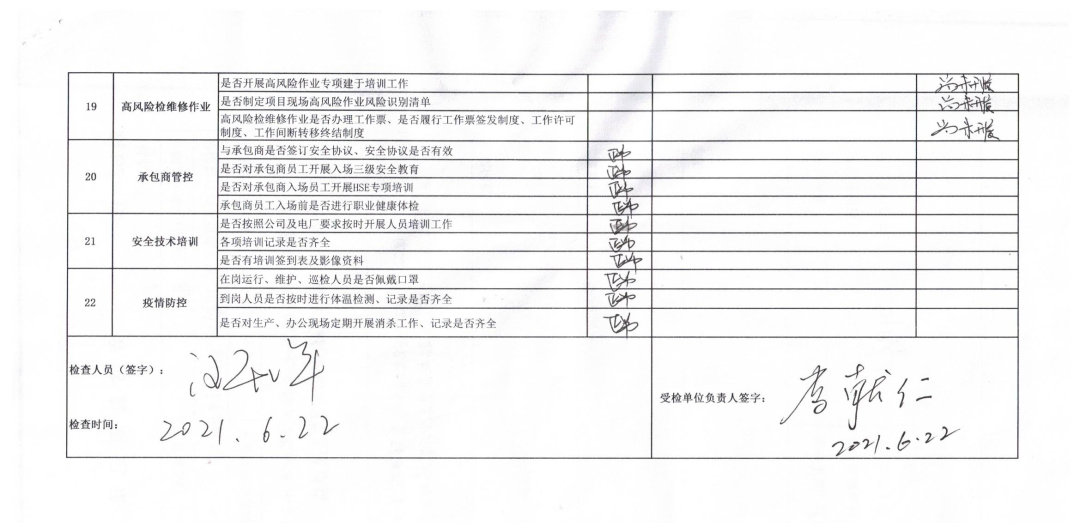 19
高风险检维修作业
是否开展高风险作业专项建于培训工作
尚未开展
是否制定项目现场高风险作业风险识别清单
尚未开展
高风险检维修作业是否办理工作票、是否履行工作票签发制度、工作许可
制度、工作间断转移终结制度
尚未开展
20
承包商管控
与承包商是否签订安全协议、安全协议是否有效
正常
是否对承包商员工开展入场三级安全教育
正常
是否对承包商入场员工开展HSE专项培训
正常
承包商员工入场前是否进行职业健康体检
正常
21
安全技术培训
是否按照公司及电厂要求按时开展人员培训工作
正常
各项培训记录是否齐全
正常
是否有培训签到表及影像资料
正常
22
疫情防控
在岗运行、维护、巡检人员是否佩戴口罩
正常
到岗人员是否按时进行体温检测、记录是否齐全
正常
是否对生产、办公现场定期开展消杀工作、记录是否齐全
正常
检查人员（签字）：
检查时间： 2021.6.22
受检单位负责人签字： 李献仁
2021.6.22